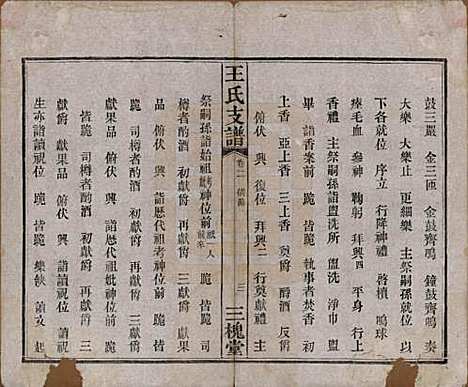 鼓三嚴　金三匝　金鼓齊鳴　鐘鼓齊鳴　奏
大樂　大樂止　更細樂　主祭嗣孫就位
下者就位　序立　行降神禮　啓櫝　鳴球
瘞毛血　參神　鞠躬　拜興四　平身　行上
香禮　主祭嗣孫詣盥洗所　盥洗　淨巾　盥
畢　詣香案前　跪　皆跪　執事者焚香　初
上香　亞上香　三上香　奠爵　酹酒　反爵
俯伏　興　復位　拜興二　行奠獻禮　主
王氏支譜
卷一
三
三槐堂
祭嗣孫詣始祖妣考神位前　跪　皆跪　司
樽者酌酒　初獻爵　亞獻爵　三獻爵　獻
果品　俯伏　興　詣歷代祖考妣神位前　跪
皆跪　司樽者酌酒　初獻爵　亞獻爵　三
獻爵　獻果品　俯伏　興　詣讀祝位　讀祝
生亦詣讀祝位　跪　皆跪　樂　讀文　起